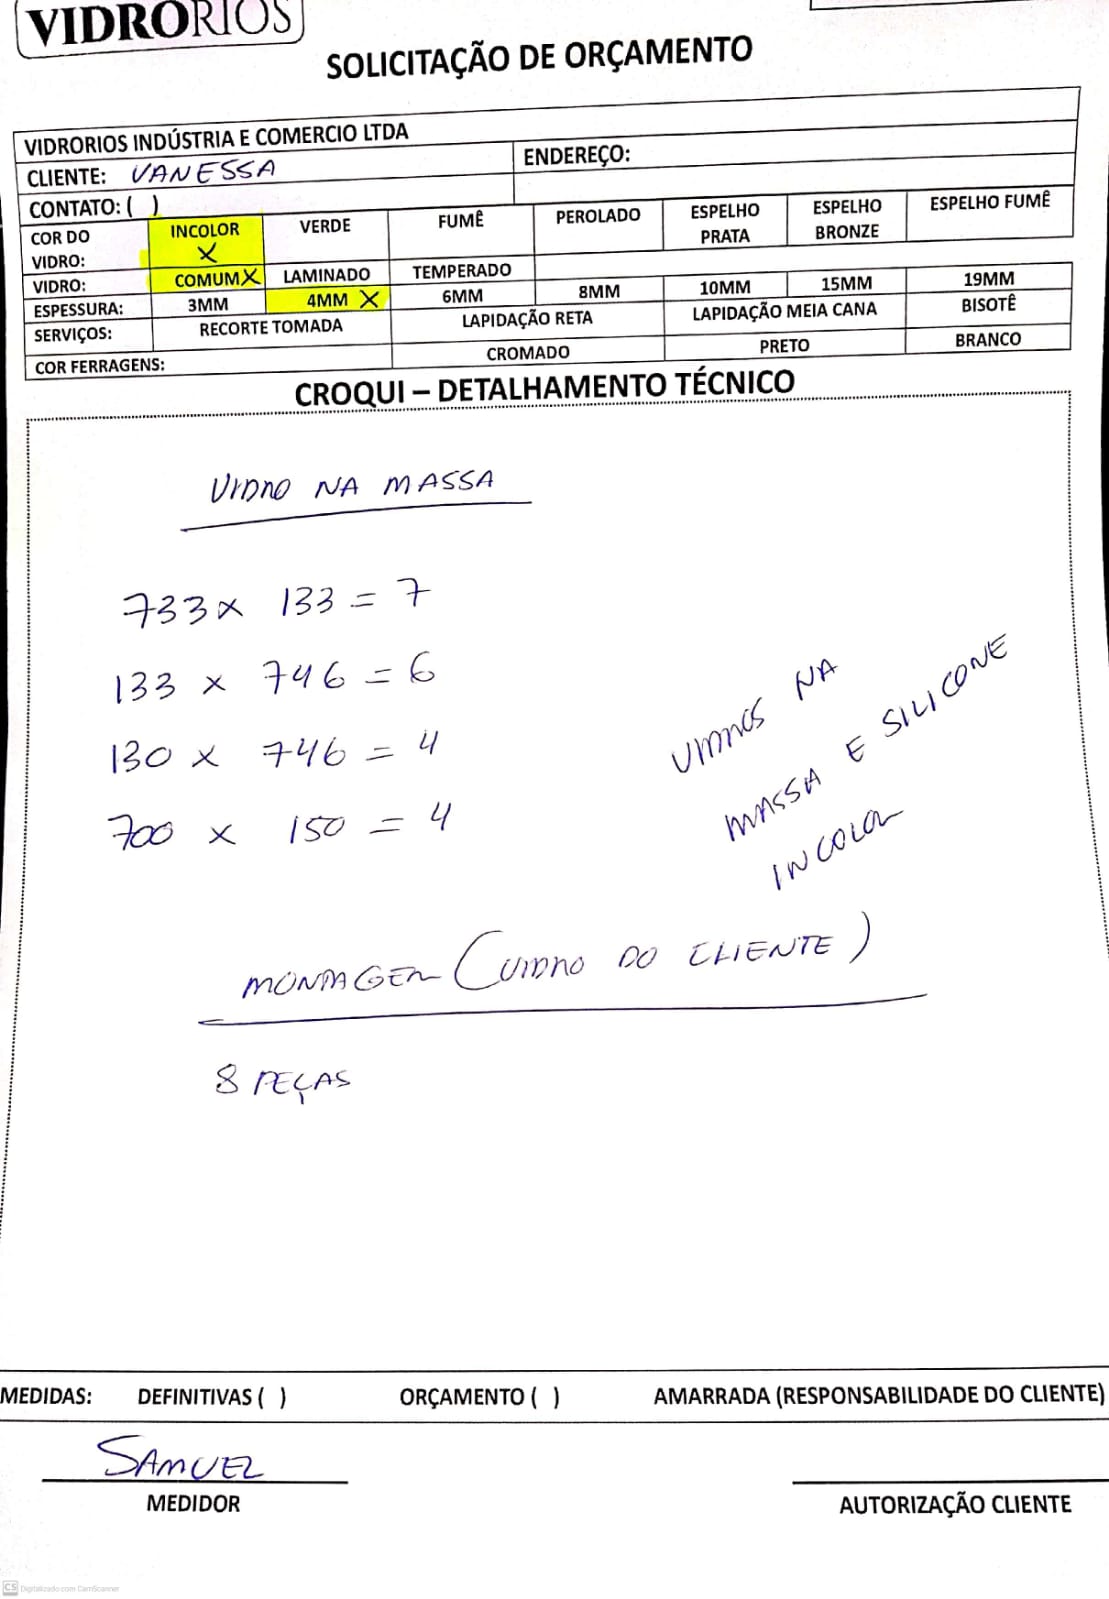 VIDRORIOS
SOLICITAÇÃO DE ORÇAMENTO
VIDRORIOS INDÚSTRIA E COMERCIO LTDA
CLIENTE: VANESSA
ENDEREÇO:
CONTATO: ( )
COR DO VIDRO: INCOLOR X VERDE FUMÊ PEROLADO ESPELHO PRATA ESPELHO BRONZE ESPELHO FUMÊ
VIDRO: COMUM X LAMINADO TEMPERADO
ESPESSURA: 3MM 4MM X 6MM 8MM 10MM 15MM 19MM
SERVIÇOS: RECORTE TOMADA LAPIDAÇÃO RETA LAPIDAÇÃO MEIA CANA BISOTÊ
COR FERRAGENS: CROMADO PRETO BRANCO
CROQUI – DETALHAMENTO TÉCNICO
VIDRO NA MASSA
733 x 133 = 7
133 x 746 = 6
130 x 746 = 4
700 x 150 = 4
VIDROS NA
MASSA E SILICONE
INCOLOR
MONTAGEM (VIDRO DO CLIENTE)
8 PEÇAS
MEDIDAS: DEFINITIVAS ( ) ORÇAMENTO ( ) AMARRADA (RESPONSABILIDADE DO CLIENTE)
SAMUEL
MEDIDOR
AUTORIZAÇÃO CLIENTE
CS Digitalizado com CamScanner